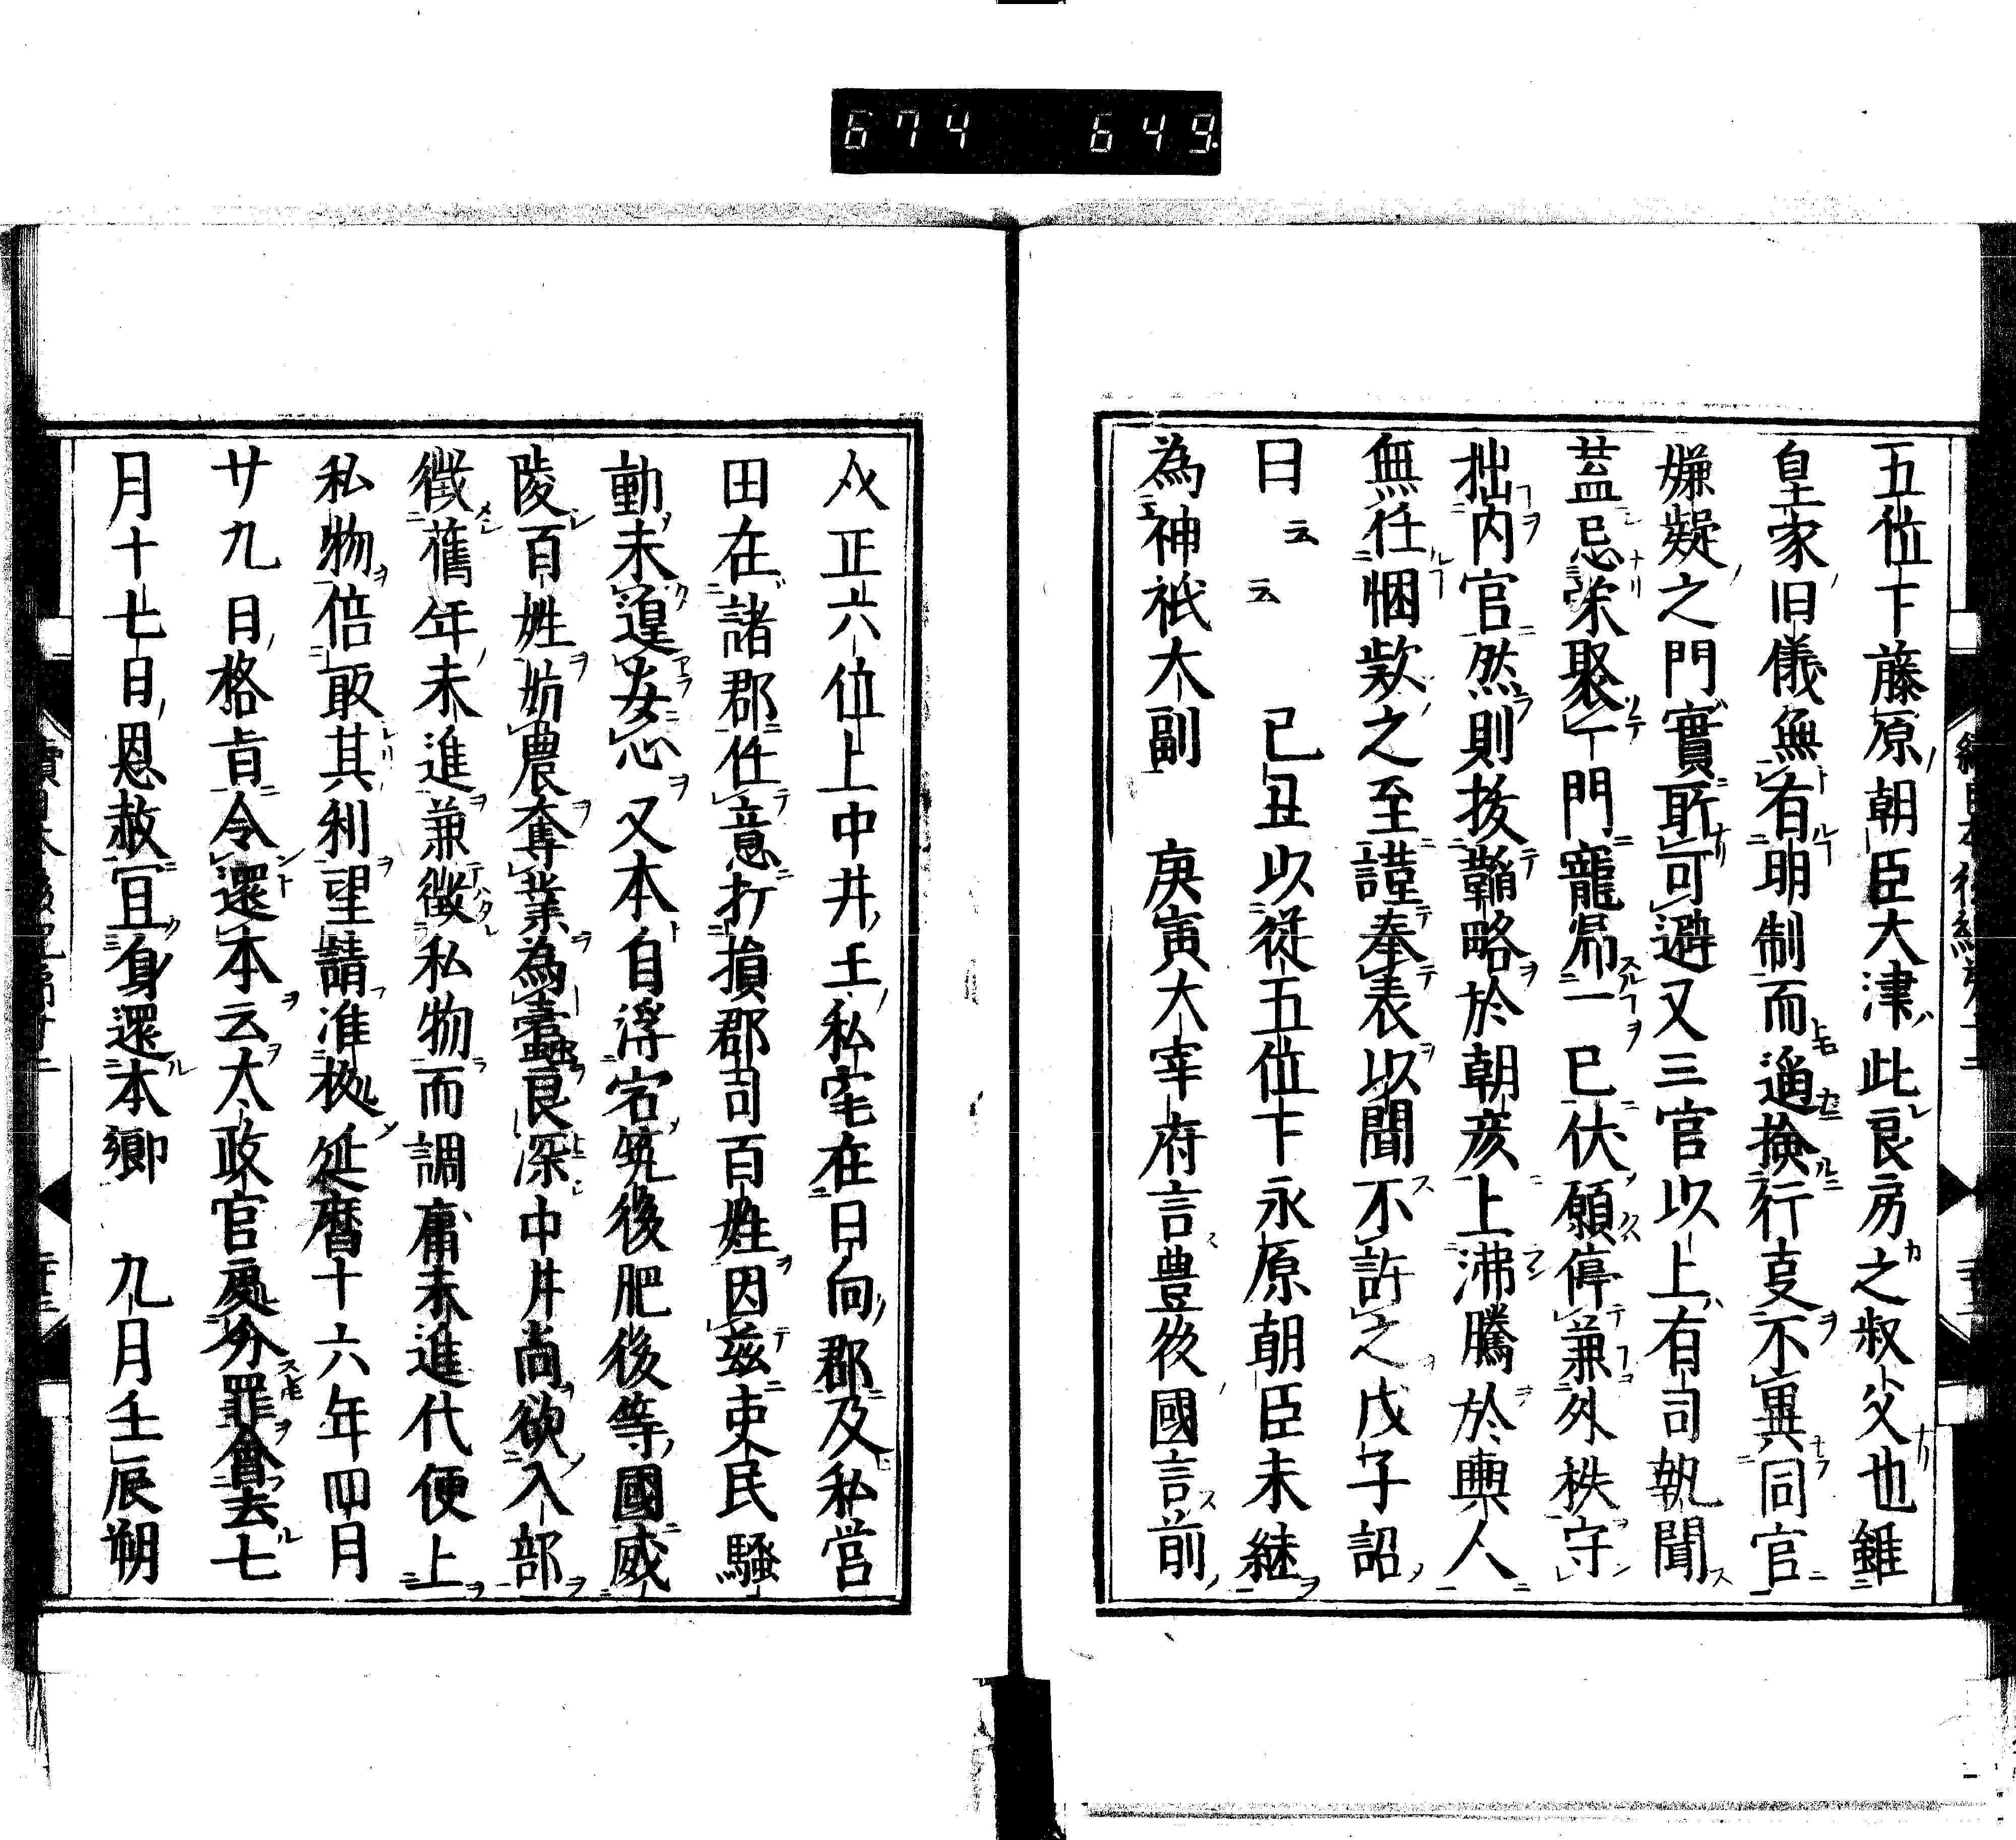 674 649
五位下藤原朝臣大津此良房之叔父也雖
皇家旧儀無有明制而適撿行㕝不異同官
嫌疑之門實耻可避又三官以上有司執聞
葢忌榮聚一門寵昂一已伏願停兼外秩守
拙内官然則抜鞱略於朝彦上沸騰於輿人
無任悃款之至謹奉表以聞不許之戊子詔
曰云云 已丑以從五位下永原朝臣末継
為神祇大副 庚寅大宰府言豊後國言前
介正六位上中井王私宅在日向郡及私営
田在諸郡任意打損郡司百姓因兹吏民騒
動未遑安心又本自浮宕筑後肥後等國威
陵百姓妨農奪業為蠹良深中井尚欲入部
徴舊年未進兼徴私物而調庸未進代便上
私物倍取其利望請准拠延暦十六年四月
廿九日格旨令還本云太政官處分罪會去七
月十七日恩赦冝身還本郷 九月壬辰朔